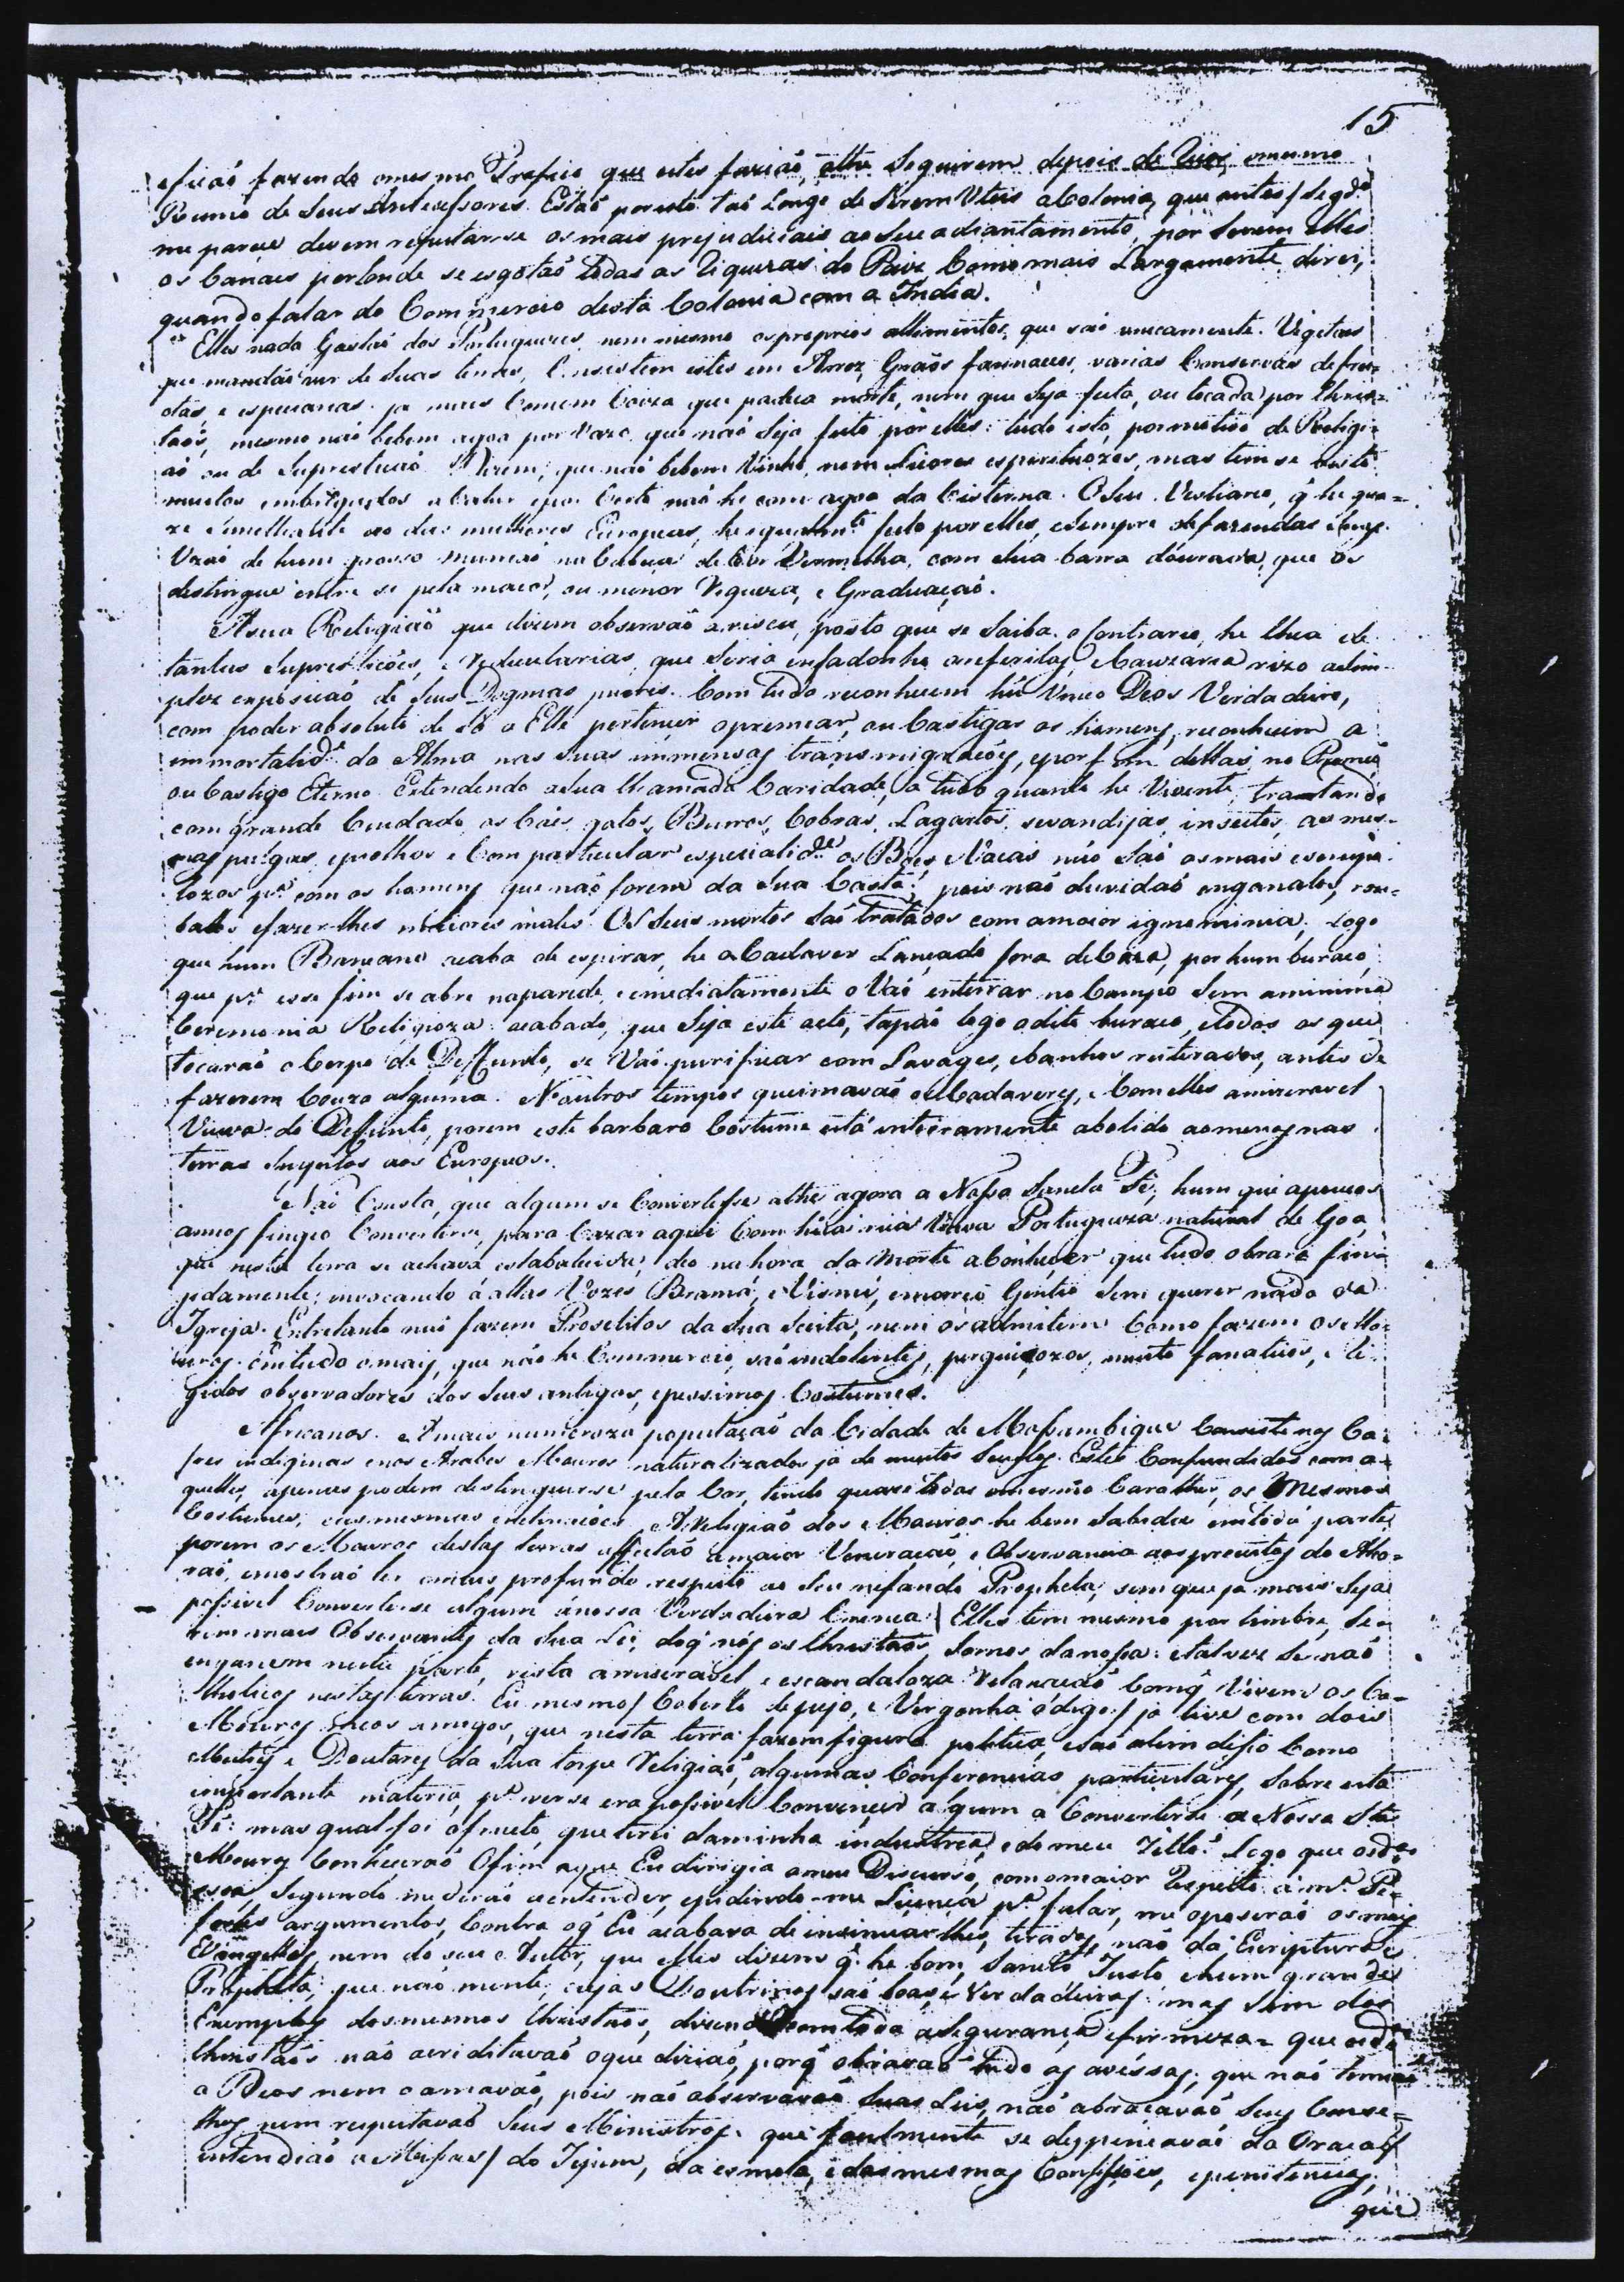 15
eficaó fazendo omesmo Trafico que estes faziaó, athe Seguirem depois de Ricos omesmo
Rumo de Seus Antecessores. Estaó poresto taó Longe de Serem Uteis aColonia, que antes / Segdo.
me parece devem reputarse os mais prejudiciais ao Seu adiantamento, por Serem elles
os Canaes porlonde se esgotaó todas as Riquezas do Paiz Como mais Largamente direi,
quando falar do Commercio desta Colonia com a India.
Elles nada Gastaó dos Portuguezes, nem mesmo os proprios allimentos, que saó unicamente Vegetaes
que mandaó vir de Suas terras, Consestem estes em Arroz, Graós farinaceos, varias Conservas defru=
ctas, e especiarias. ja mais Comem Couza que padeça morte, nem que Seja feita, ou tocada por Chris=
taós, mesmo naó bebem agoa por Vazo que naó Seja feito por elles: tudo isto, pormotivo de Religi=
aó ou de Suprestiçaó. Dizem, que naó bebem Vinho, nem Licores espirituozos, mas tem se visto
muitos embriagados e Certo naó he com agoa da Cisterna. O Seu Vestiario, q̃ he qua=
ze Semelhante ao das mulheres Europeas, he igualmte. feito por elles, eSempre de fazendas
Uzaó de hum na Cabeça de Cor Vermelha, com Sua barra dourada, que os
destingue entre si pela maior, ou menor Riqueza, e Graduaçaó.
Asua Religiaó que dizem observaó arisca, posto que se Saiba o Contrario, he Chea de
tantas Suprestiçoés, e Rediculárias, que Seria enfadonho areferilas, eCauzaria rizo aSim=
plez exposiçaó de Seus Dogmas pueris. Com tudo reconhecem hũ Unico Deos Verdadeiro,
com poder absoluto de só a Elle pertencer opremiar, ou Castigar os homens, reconhecem a
immortalide. da Alma nas Suas immensas transmigraçoés, eporfim dellas no Premio,
ou Castigo Eterno. Extendendo aSua Chamada Caridade, a tudo quanto he Vivente, tractando
com grande Cuidado os Caés, gatos, Burros, Cobras, Lagartos, sevandijas, insectos, as mes=
mas pulgas, epiolhos, e Com particular especialide. os Bois, e Vacas, naó Saó osmais escrupu=
lozos pa. com os homens que naó forem da Sua Casta: pois naó duvidaó enganalos, rou=
balos efazer-lhes maiores males. Os Seus mortos Saó tratados com amaior ignominia; Logo
que hum Baneane acaba de espirar, he oCadaver Lançado fora deCaza, por hum buraco,
que pa. esse fim se abre naparede, e imediatamente o Vaó enterrar no Campo Sem aminima
Ceremonia Religioza: acabado, que Seja este acto, tapaó logo odito buraco, etodos os que
tocaraó oCorpo do Deffunto, se Vaó purificar com Lavages, eBanhos reiterados, antes de
fazerem Couza alguma. N'outros tempos queimavaó os Cadaveres, e Com elles amizeravel
Viuva do Deffunto, porem este barbaro Costume está inteiramente abolido aomenos nas
terras Sugeitas aos Europeos.
Naó Consta, que algum se Convertesse athe agora a Nossa Sancta Fé; hum que apoucos
annos fingio Converterse, para Cazar aqui Com hũa rica Viuva Portugueza natural de Goa
que nesta terra se achava estabalecida, deo na hora da Morte aConhecer que tudo obrara fin=
gidamente: invocando á altas Vozes Bramá, e Visnú, emorreo Gentio Sem querer nada da
Igreja. Entretanto naó fazem Proselitos da Sua Seita, nem os admitem Como fazem os Mo=
uros. Em tudo omais, que não he Commercio, saó indolentes, perguiçozos, muito fanaticos, e Ri=
gidos observadores dos Seus antigos, epessimos Costumes.
Africanos. Amais numeroza populaçaó da Cidade de Mossambique Consiste nos Ca=
fres indiginas enos Arabes Mouros naturalizados ja de muitos Seculos. Estes Confundidos com a=
quelles, apenas podem destinguirse pela Cor, tendo quazi todos omesmo Carather, os Mesmos
Costumes, easmesmas inclinaçoés. A Religiaó dos Mouros he bem Sabida em toda parte,
porem os Mouros destas terras affectaó amaior Veneraçaó, e Observancia aos preceitos do Alco=
raó, emostraó ter omais profundo respeito ao Seu nefando Propheta, sem que ja mais Seja
possivel Converterse algum ánossa Verdadeira Crença. | Elles tem mesmo por timbre, Se=
rem mais Observantes da Sua Lei, doq̃ nós os Christaós, Somos danossa: etalvez Se naó
enganem nesta parte, vista amiseravel e escandaloza Relaxaçaó Comq̃ Vivem os Ca=
tholicos nestas terras. Eu mesmo / Coberto depejo, e Vergonha odigo / ja tive com dois
Mouros meos amigos, que nesta terra fazem figura politica, eSaó alem disso Como
Mestres e Doutores da Sua torpe Religiaó, algumas Conferencias particulares, Sobre esta
importante materia, pa. ver se era possivel Convencer algum a Converterse a Nossa Sta.
Fé: mas qual foi ofructo, que tirei daminha industria, e do meu Zello? Logo que osdos.
Mouros Conheceraó Ofim aque Eu dirigia omeu Discurso, comomaior Respeito á ma. Pe=
ssoa, Segundo me deraó aentender, epedindo-me Licença pa. falar, me oposeraó os mais
fortes argumentos, Contra oq̃ Eu acabava de insinuar-lhes, tirados, naó da Escriptura e
Evangelhos, nem do seu Autor, que elles dizem q̃ he bom, Sancto Justo, e hum grande
Propheta, que naó mente, cujas Doutrinas saó boas e Verdadeiras: mas Sim dos
Exemplos dosmesmos Christaós, dizendo Comtoda aSegurança, efirmeza = que osdos.
Christaós naó acreditavaó oque diziaó, porq̃ obravaó tudo as avéssas; que naó temiaó
a Deos nem oamavaó, pois naó observavaó Suas Leis, naó abraçavaó Seus Conse=
lhos, nem respeitavaó Seus Ministros. que se despençavaó da Oraçaó /
entendiaó a Missa / do Jejum, da esmola, e das mesmas Confissoés, epenitencias,
que